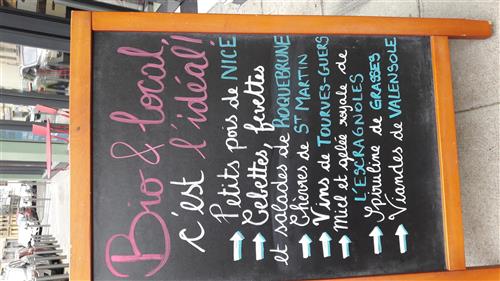 Bio & local,
c'est l'idéal!
→ Petits pois de NICE
→ Cebettes, fevettes
et salades de ROQUEBRUNE
→ Chèvres de ST MARTIN
→ Vins de TOURVES-GUERS
→ Miel et gelée royale de
L'ESCRAGNOLES
→ Spiruline de GRASSES
→ Viandes de VALENSOLE